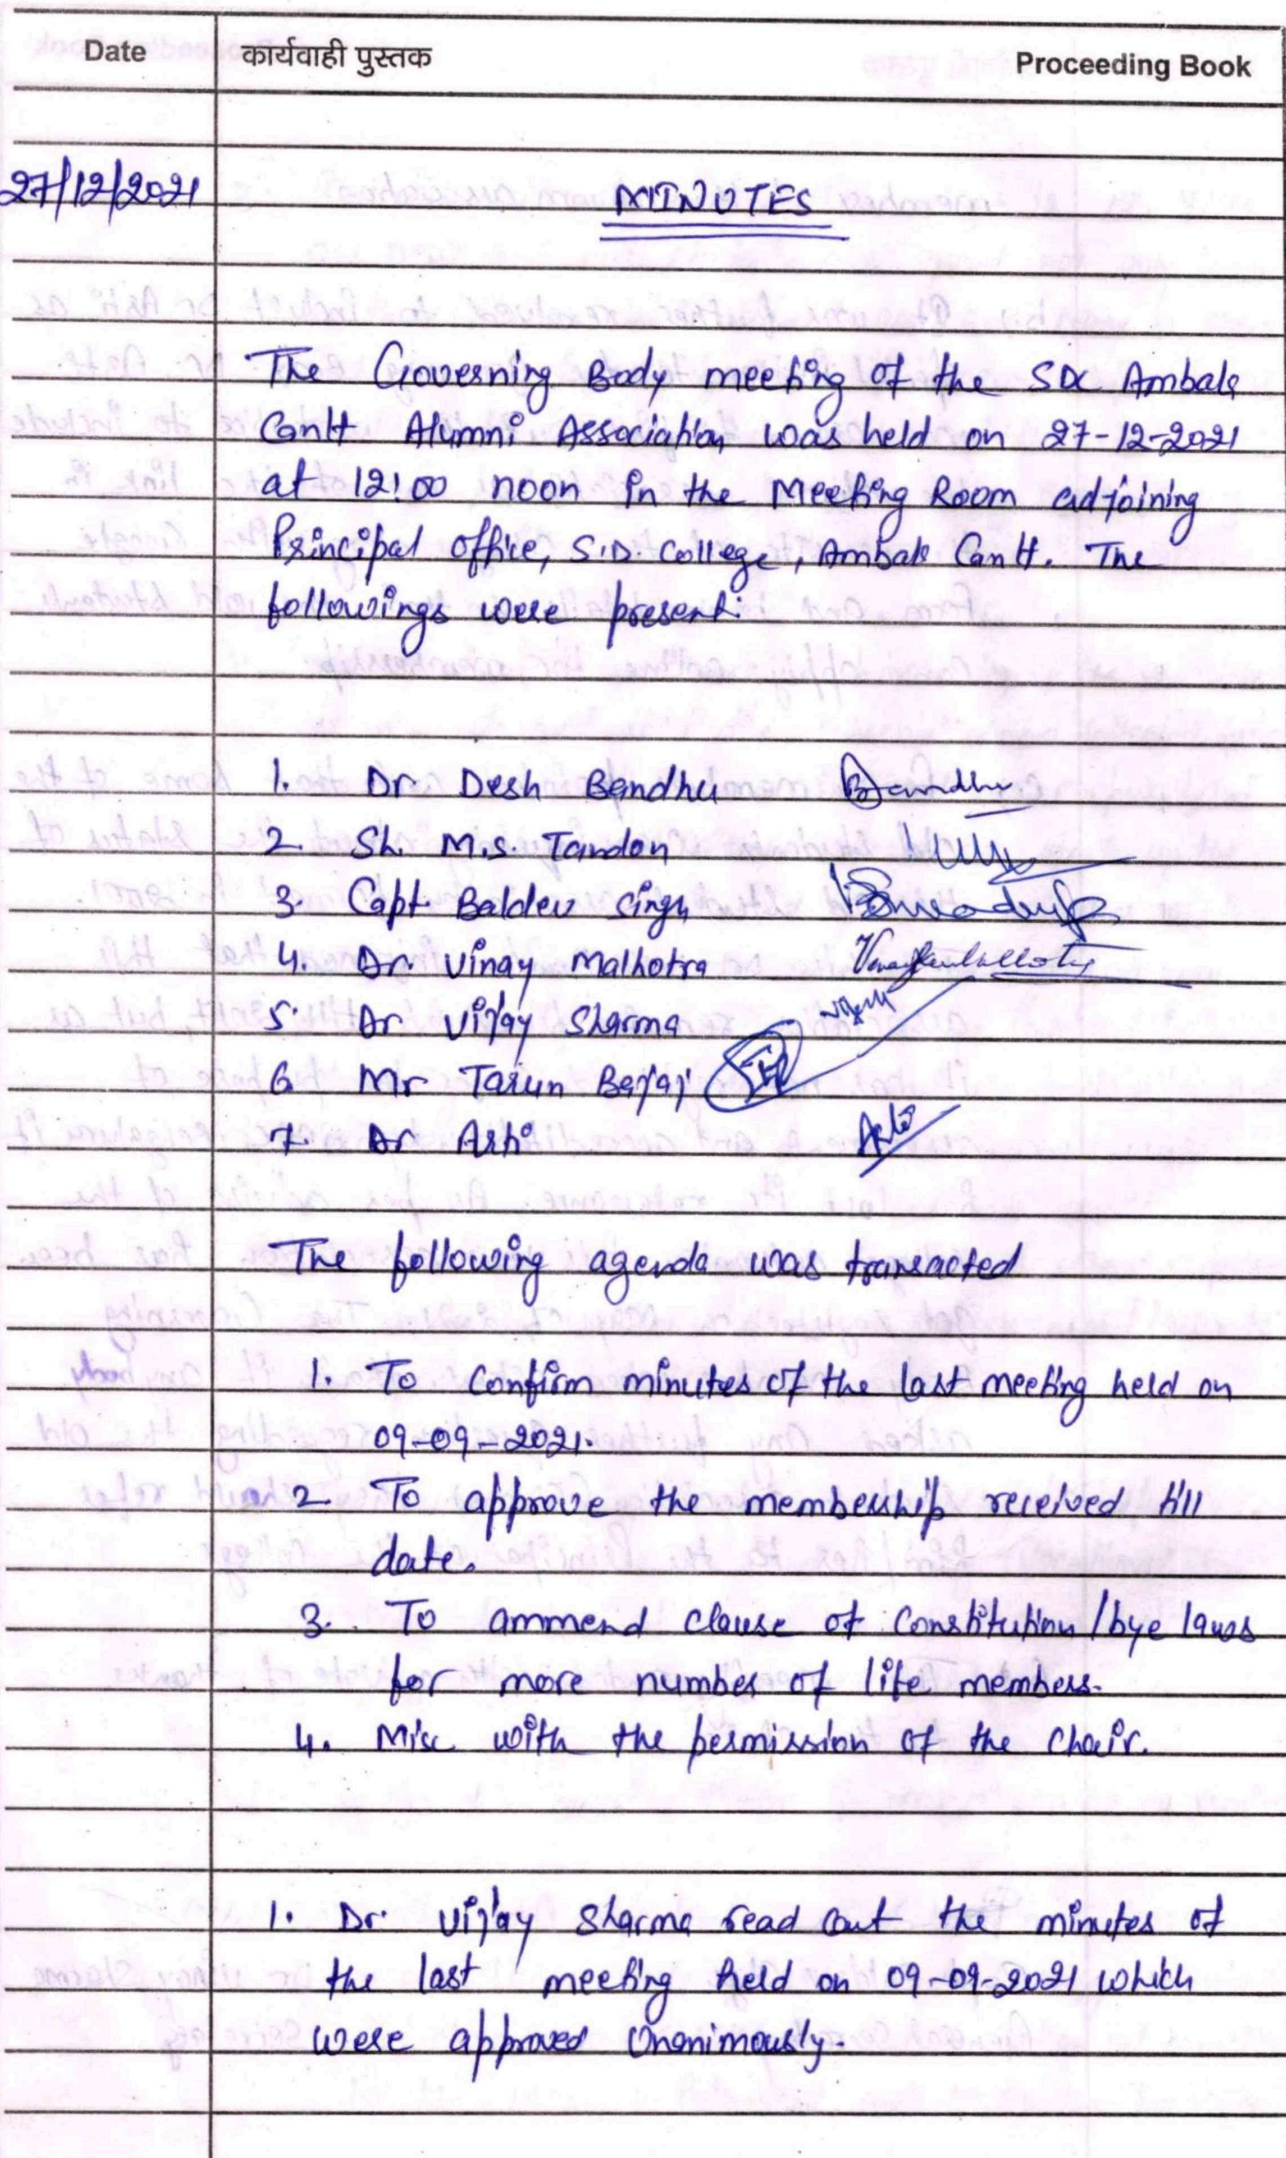 Date कार्यवाही पुस्तक Proceeding Book
27/12/2021 MINUTES
The Governing Body meeting of the SDC Ambala
Cantt Alumni Association was held on 27-12-2021
at 12:00 noon in the Meeting Room adjoining
Principal office, S.D. College, Ambala Cantt. The
followings were present:
1. Dr Desh Bandhu Bandhu
2. Sh. M.S. Tandon
3. Capt. Baldev Singh
4. Dr. Vinay Malhotra Vinay Malhotra
5. Dr Vijay Sharma Vijay
6 Mr Tarun Bajaj
7. Dr Arti Arti
The following agenda was transacted
1. To Confirm minutes of the last meeting held on
09-09-2021.
2. To approve the membership received till
date.
3. To ammend clause of Constitution/bye laws
for more number of life members.
4. Misc with the permission of the Chair.
1. Dr. Vijay Sharma read out the minutes of
the last meeting held on 09-09-2021 which
were approved Unanimously.